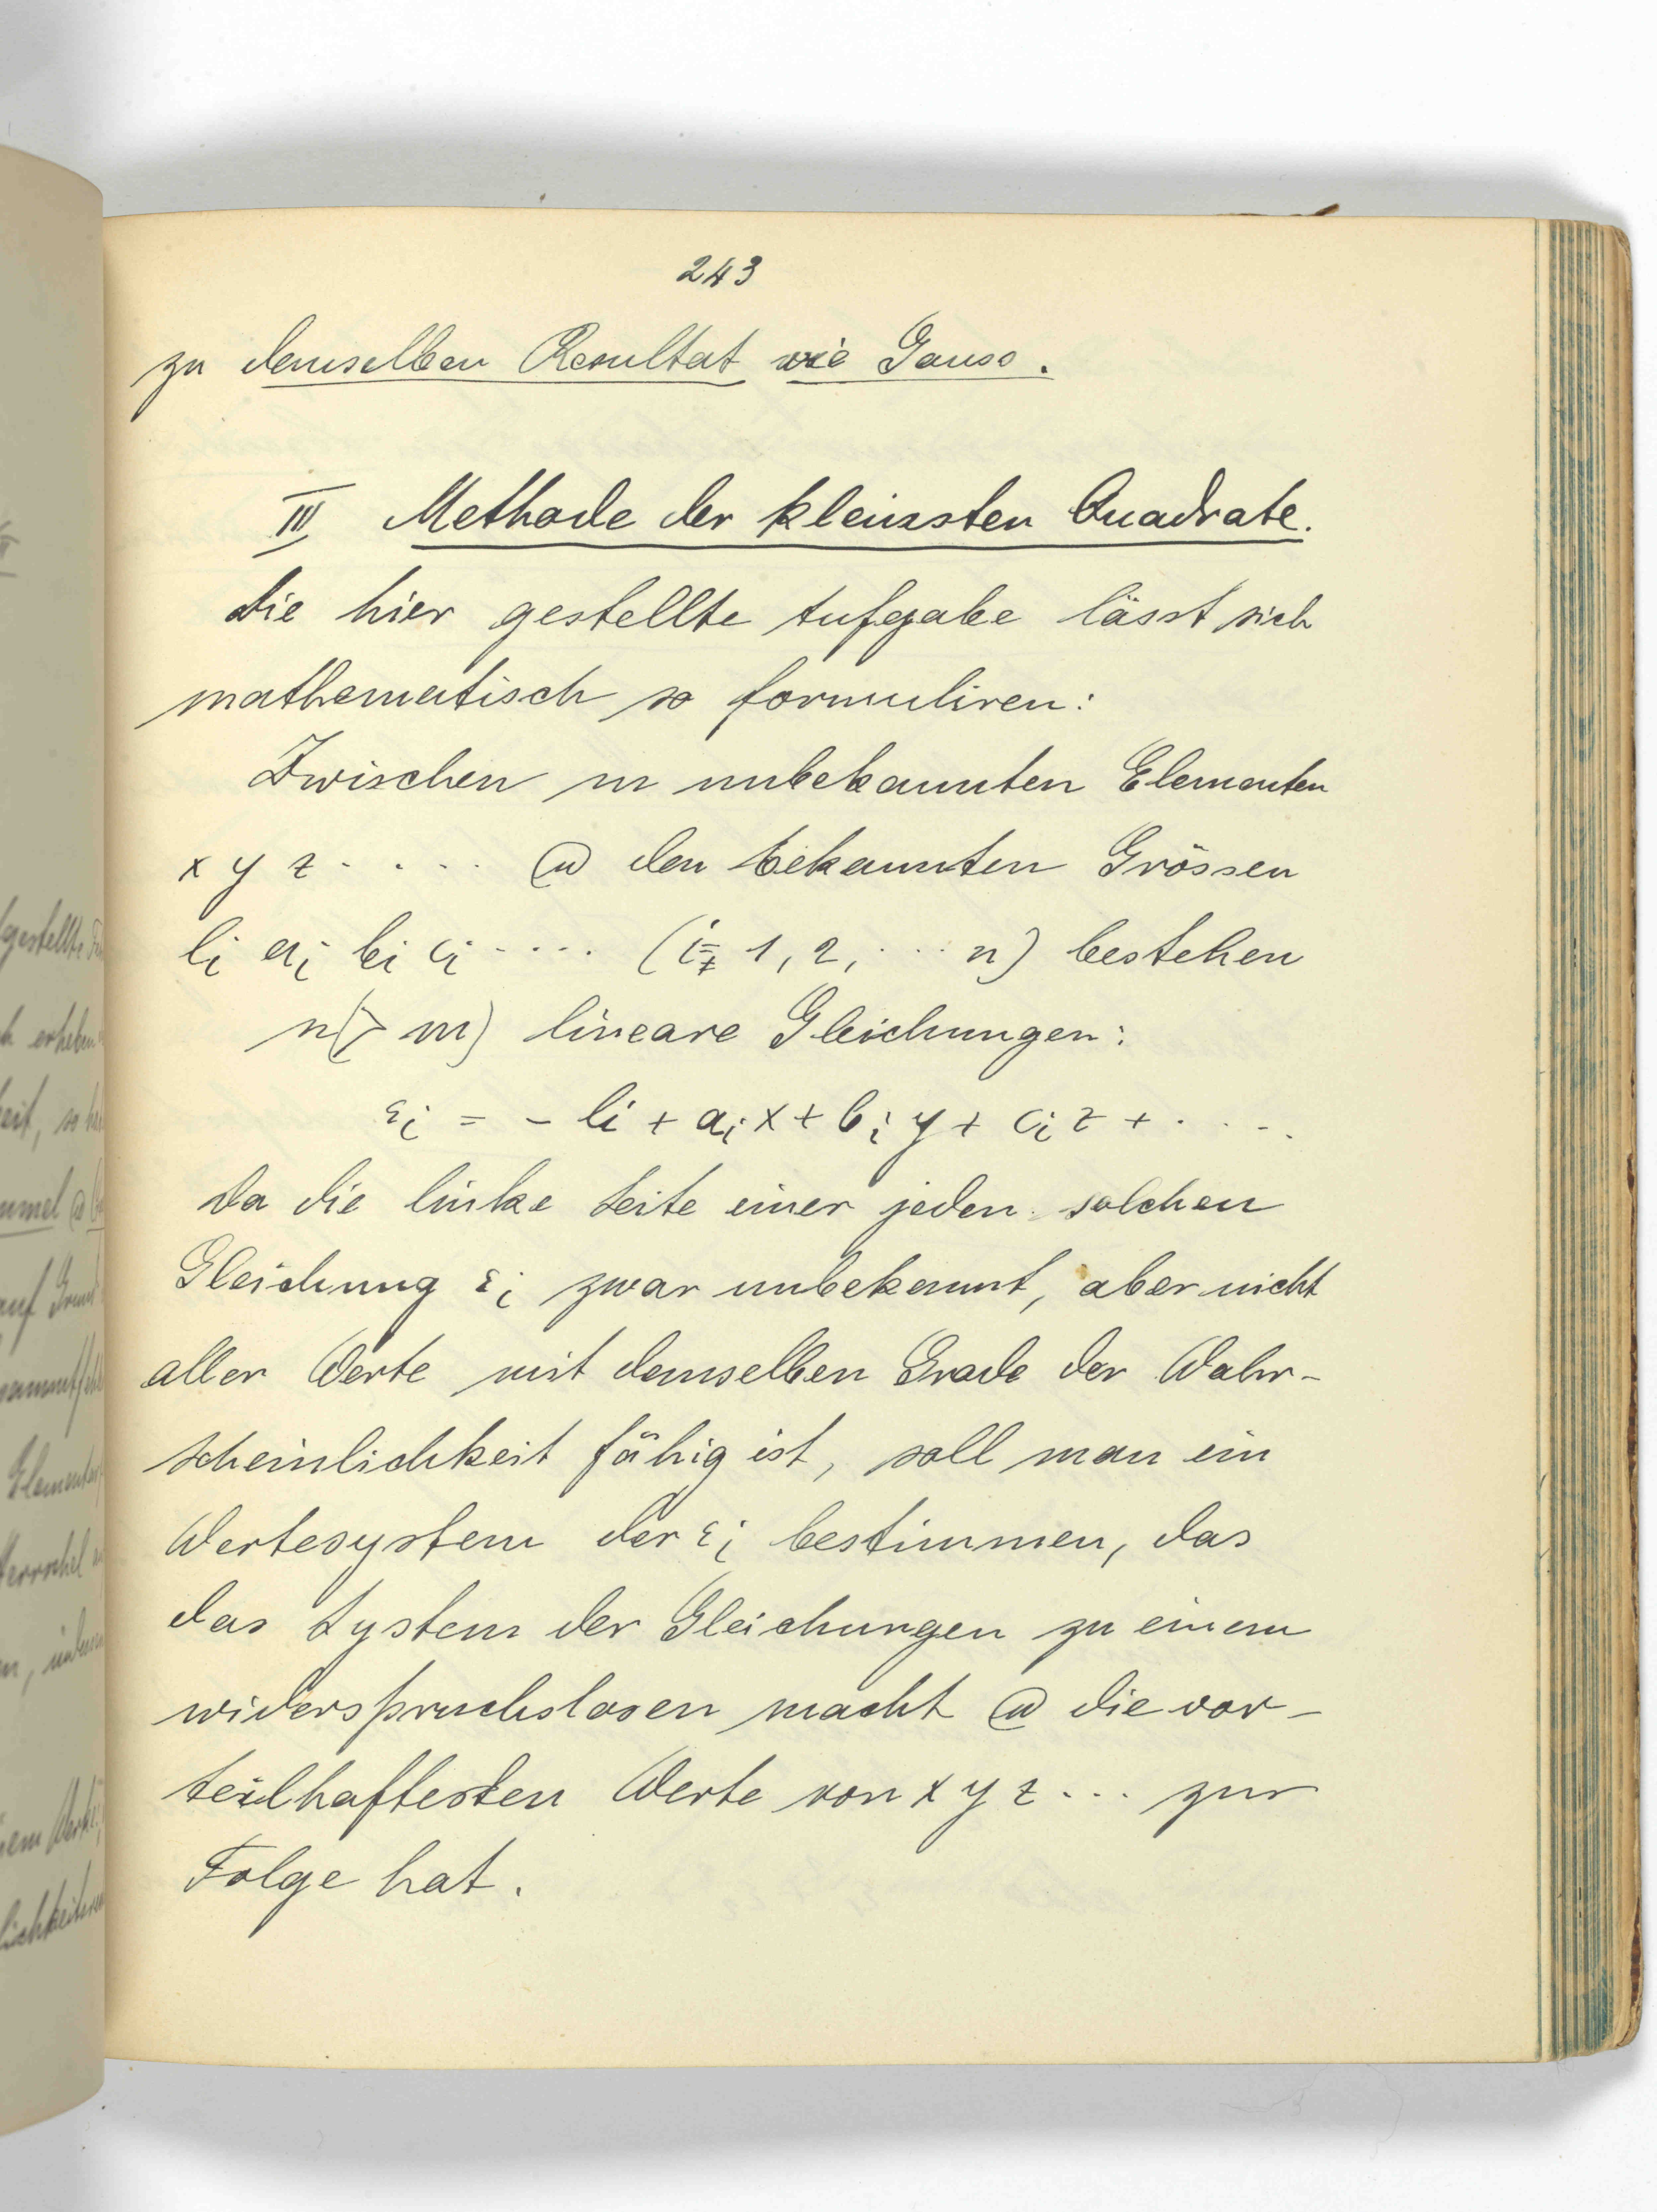 243
zu demselben Resultat wie Gauss.
III Methode der kleinsten Quadrate.
Die hier gestellte Aufgabe lässt sich
mathematisch so formuliren:
Zwischen m unbekannten Elementen
x y z . . . . . @ den bekannten Grössen
li ai bi ci . . . . (i = 1, 2, . . . n) bestehen
n(> m) lineare Gleichungen:
εi = - li + ai x + bi y + ci z + . . . .
Da die linke Seite einer jeden solchen
Gleichung εi zwar unbekannt, aber nicht
aller Werte mit demselben Grade der Wahr-
scheinlichkeit fähig ist, soll man ein
Wertesystem der εi bestimmen, das
das System der Gleichungen zu einem
widerspruchslosen macht @ die vor-
teilhaftesten Werte von x y z ... zur
Folge hat.